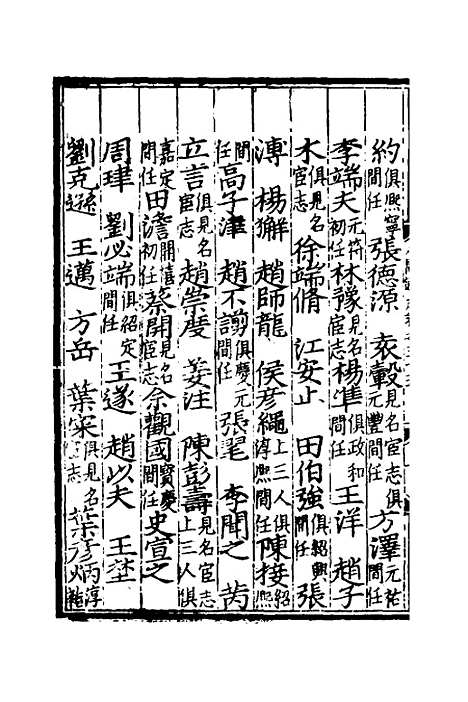 約俱熙寧間任張德源 袁轂見名宦志俱元豐間任方澤元祐間任
李端夫元符初任林豫見名宦志楊準俱政和間任王洋 趙子
木俱見名宦志徐端脩 江安止 田伯強俱紹興間任張
溥 楊獬 趙師龍 侯彥繩上三人俱淳熙間任陳接紹熙
間任高子津 趙不謭俱慶元間任張毣 李聞之 芮
立言俱見名宦志趙崇度 姜注 陳彭壽見名宦志上三人俱
嘉定間任田澹開禧初任蔡開見名宦志余觀國寶慶間任史宣之
周瑋 劉必端俱紹定間任王遂 趙以夫 王埜
劉克遜 王邁 方岳 葉寀俱見名宦志葉彥炳淳祐